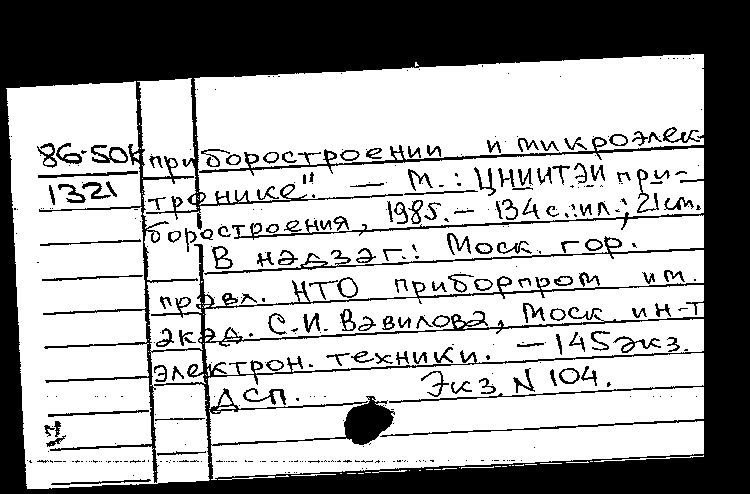 86-50К приборостроении и микроэлек-
1321 тронике". — М.: ЦНИИТЭИ при-
боростроения, 1985. — 134 с.: ил.; 21 см.
В надзаг.: Моск. гор.
правл. НТО приборпром им.
акад. С.И. Вавилова, Моск. ин-т
электрон. техники. — 145 экз.
ДСП. Экз. N 104.